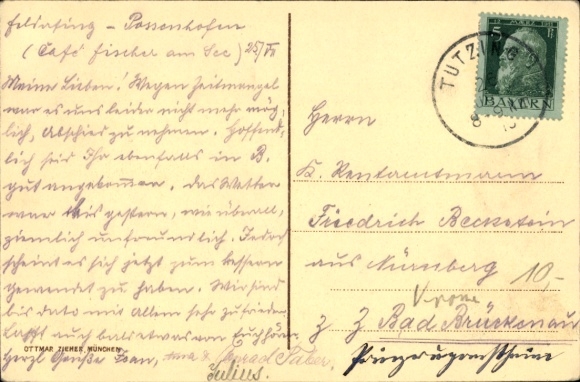 Feldafing - Possenhofen
(Café Fischer am See) 25/VI
Meine Lieben! Wegen Zeitmangel
war es uns leider nicht mehr mög,
lich, Abschied zu nehmen. Hoffent,
lich seid Ihr ebenfalls in B.
gut angekommen. Das Wetter
war bis gestern, wie überall,
ziemlich unfreundlich. Jedoch
scheint es sich jetzt zum bessern
gewendet zu haben. Wir sind
bis dato mit Allem sehr zufrieden
Laßt auch bald etwas von Euch hören
Herzl. Grüße
Julius.
OTTMAR ZIEHER, MÜNCHEN
5
BAYERN
TUTZING
Herrn
K. Rentamtmann
Friedrich Beckstein
aus Nürnberg
10-
z Z Bad Brückenau